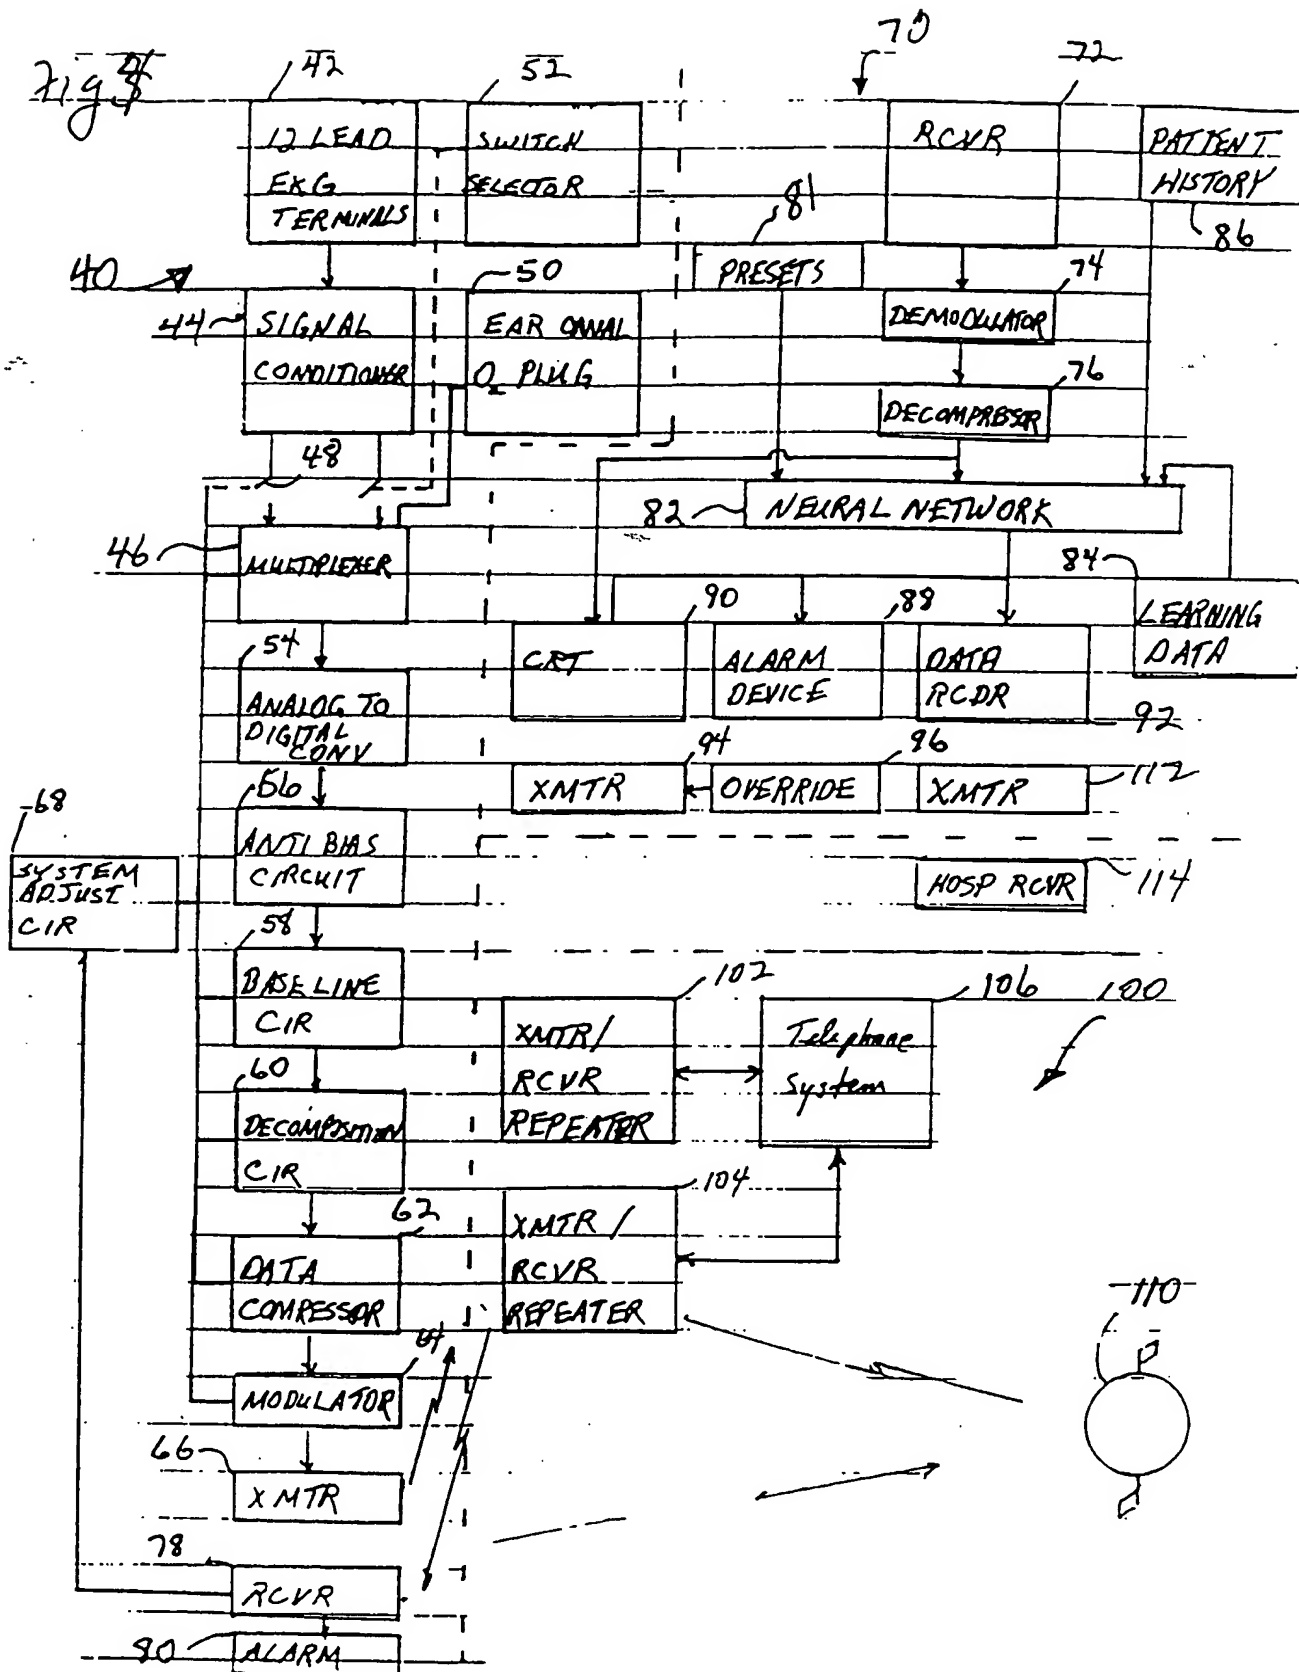 Fig 4
42
52
70
72
12 LEAD
EKG
TERMINALS
SWITCH
SELECTOR
RCVR
PATIENT
HISTORY
81
86
40
50
PRESETS
74
44
SIGNAL
CONDITIONER
EAR CANAL
O2 PLUG
DEMODULATOR
76
DECOMPRESSOR
48
82
NEURAL NETWORK
46
MULTIPLEXER
84
90
88
LEARNING
DATA
54
CRT
ALARM
DEVICE
DATA
RCDR
ANALOG TO
DIGITAL
CONV
92
94
96
56
XMTR
OVERRIDE
XMTR
112
68
ANTI BIAS
CIRCUIT
SYSTEM
ADJUST
CIR
HOSP RCVR
114
58
BASE LINE
CIR
102
106
100
XMTR/
RCVR
REPEATER
Telephone
System
60
DECOMPOSITION
CIR
104
62
XMTR/
RCVR
REPEATER
DATA
COMPESSOR
110
64
MODULATOR
66
XMTR
78
RCVR
80
ALARM